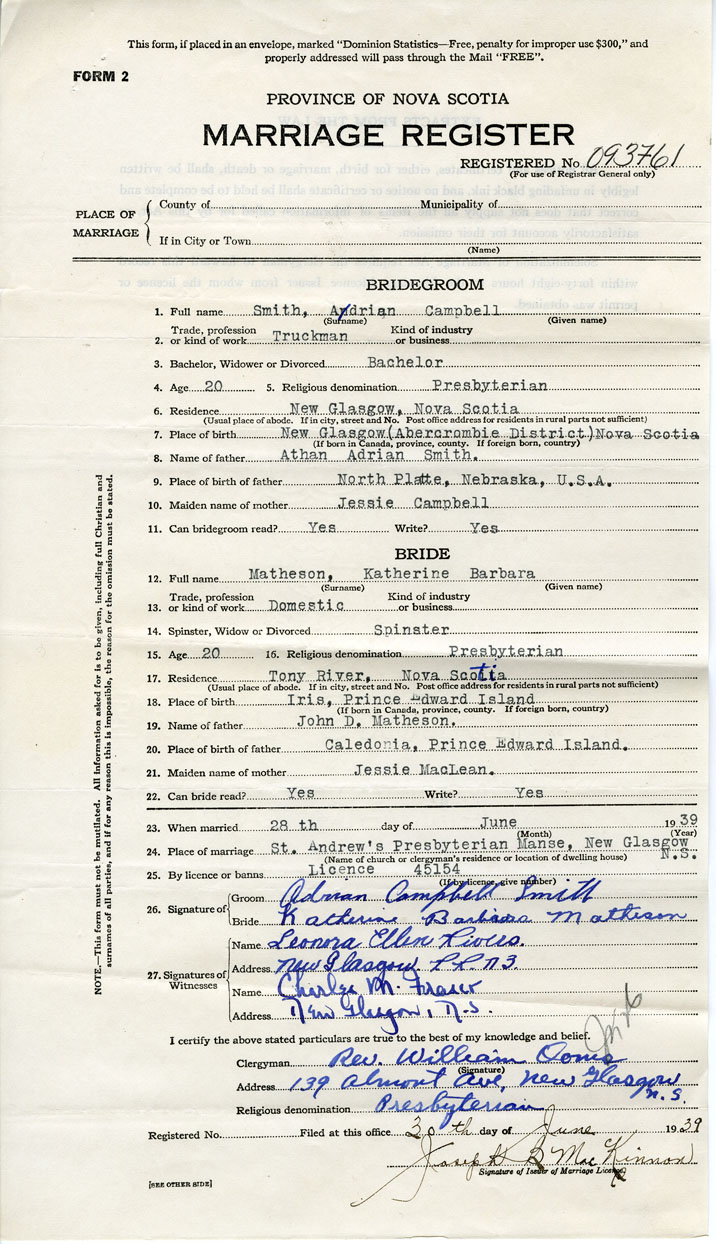 This form, if placed in an envelope, marked "Dominion Statistics—Free, penalty for improper use $300," and
properly addressed will pass through the Mail "FREE".
FORM 2
PROVINCE OF NOVA SCOTIA
MARRIAGE REGISTER
REGISTERED No. 093761
(For use of Registrar General only)
PLACE OF MARRIAGE
County of Municipality of
If in City or Town
(Name)
BRIDEGROOM
1. Full name Smith, Adrian Campbell
(Surname) (Given name)
2. Trade, profession or kind of work Truckman Kind of industry or business
3. Bachelor, Widower or Divorced Bachelor
4. Age 20 5. Religious denomination Presbyterian
6. Residence New Glasgow, Nova Scotia
(Usual place of abode. If in city, street and No. Post office address for residents in rural parts not sufficient)
7. Place of birth New Glasgow(Abercrombie District)Nova Scotia
(If born in Canada, province, county. If foreign born, country)
8. Name of father Athan Adrian Smith.
9. Place of birth of father North Platte, Nebraska, U.S.A.
10. Maiden name of mother Jessie Campbell
11. Can bridegroom read? Yes Write? Yes
BRIDE
12. Full name Matheson, Katherine Barbara
(Surname) (Given name)
13. Trade, profession or kind of work Domestic Kind of industry or business
14. Spinster, Widow or Divorced Spinster
15. Age 20 16. Religious denomination Presbyterian
17. Residence Tony River, Nova Scotia
(Usual place of abode. If in city, street and No. Post office address for residents in rural parts not sufficient)
18. Place of birth Iris, Prince Edward Island
(If born in Canada, province, county. If foreign born, country)
19. Name of father John D. Matheson.
20. Place of birth of father Caledonia, Prince Edward Island.
21. Maiden name of mother Jessie MacLean.
22. Can bride read? Yes Write? Yes
23. When married 28 th day of June 1939
(Month) (Year)
24. Place of marriage St. Andrew's Presbyterian Manse, New Glasgow N.S.
(Name of church or clergyman's residence or location of dwelling house)
25. By licence or banns Licence 45154
(If by licence, give number)
26. Signature of Groom Adrian Campbell Smith
Bride Katherine Barbara Matheson
27. Signatures of Witnesses
Name Leonora Ellen
Address New Glasgow R.R. N3.
Name Charles M. Fraser
Address New Glasgow, N.S.
I certify the above stated particulars are true to the best of my knowledge and belief.
Clergyman Rev. William Ooms
(Signature)
Address 139 Almont Ave, New Glasgow N.S.
Religious denomination Presbyterian
Registered No. Filed at this office 30 th day of June 1939
Joseph B MacKinnon
Signature of Issuer of Marriage Licence
[SEE OTHER SIDE]
NOTE.—This form must not be mutilated. All information asked for is to be given, including full Christian and
surnames of all parties, and if for any reason this is impossible, the reason for the omission must be stated.